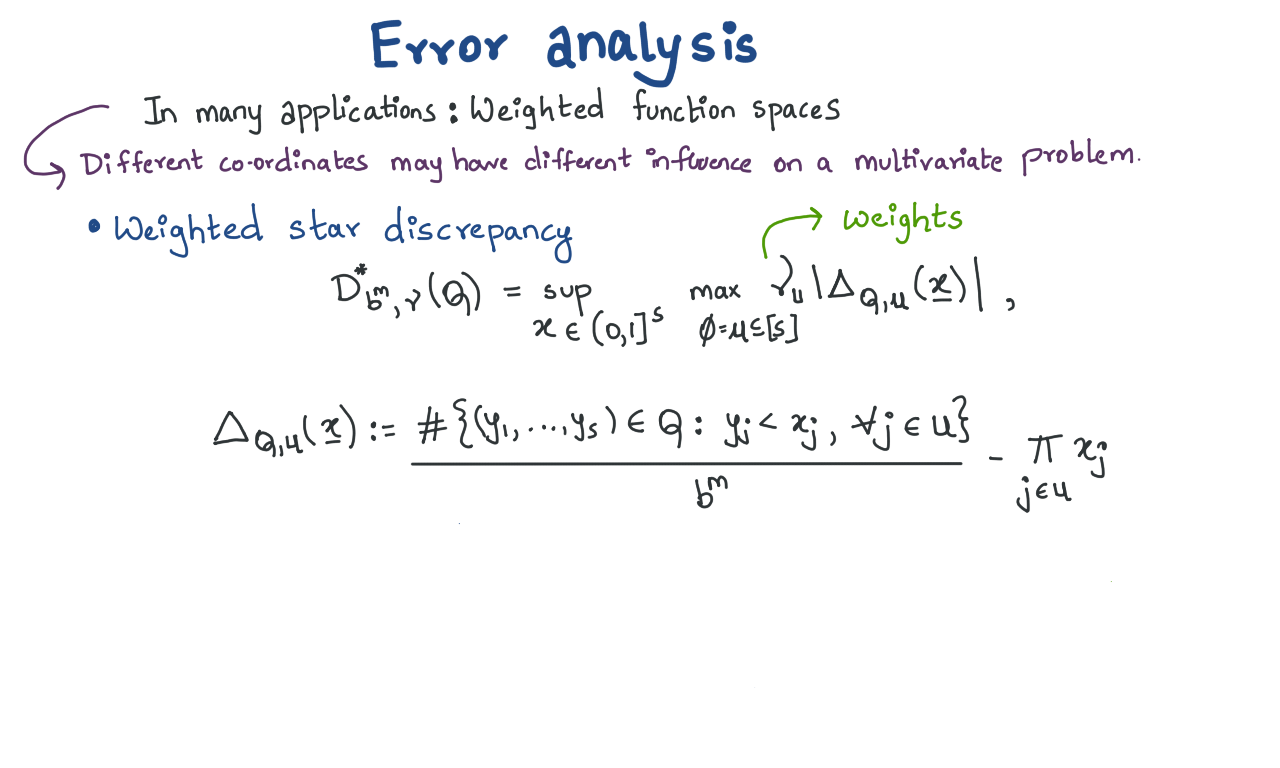 Error analysis
In many applications : Weighted function spaces
Different co-ordinates may have different influence on a multivariate problem.
• Weighted star discrepancy
→ weights
D*_{b^m, γ}(Q) = sup_{x ∈ (0,1]^s} max_{∅=u⊆[s]} γ_u |Δ_{Q,u}(x)| ,
Δ_{Q,u}(x) := #{(y_1, ..., y_s) ∈ Q : y_j < x_j , ∀j ∈ u} / b^m - ∏_{j∈u} x_j